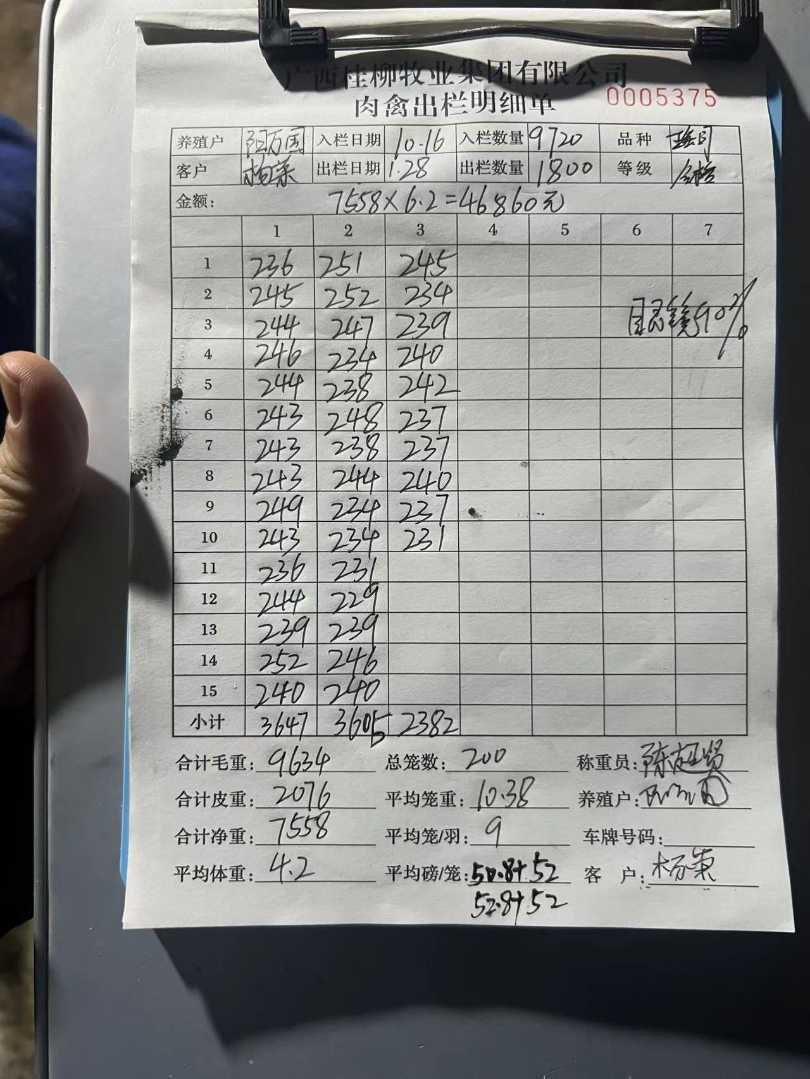 广西桂柳牧业集团有限公司
肉禽出栏明细单 0005375
养殖户 入栏日期 10.16 入栏数量 9720 品种
客户 杨荣 出栏日期 1.28 出栏数量 1800 等级 合格
金额: 7558×6.2=46860元
1 2 3 4 5 6 7
1 236 251 245
2 245 252 234
3 244 247 239
4 246 234 240
5 244 238 242
6 243 248 237
7 243 238 237
8 243 244 240
9 249 234 237
10 243 234 231
11 236 231
12 244 229
13 239 239
14 252 246
15 240 240
小计 3647 3605 2382
90%
合计毛重: 9634 总笼数: 200 称重员: 陈超贤
合计皮重: 2076 平均笼重: 10.38 养殖户:
合计净重: 7558 平均笼/羽: 9 车牌号码:
平均体重: 4.2 平均磅/笼: 50.8+52 客 户: 杨荣
52.8+52